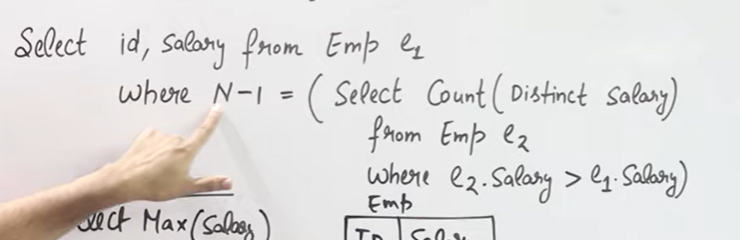 Select id, Salary from Emp e1
where N-1 = ( Select Count( Distinct Salary)
from Emp e2
where e2.Salary > e1.Salary)
Emp
Max(Salary)
ID